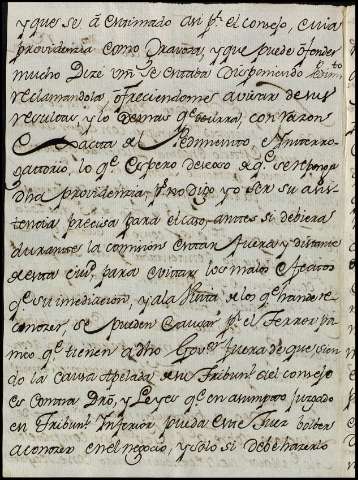 y que se á estimado asi pr. el consejo, cuia
providencia como Gravosa, y que puede ofender
mucho Dize Vm. se estaba disponiendo Pedimto.
reclamandola, ofreciendome avisar de sus
resultas, y lo demas qe. ocurra, con razon
Exacta del Pedimento, e Interro-
gattorio, lo qe. espero deseoso de qe. se reponga
dha providencia, pr. no digo yo ser su asis-
tencia precisa para el caso, antes si debiera
durante la comision estar fuera y distante
de esta ciud. para evitar los malos efectos
qe. su imediacion, y a la vista de los qe. han de re-
conozer, se pueden causar pr. el Terror pa-
nico qe. tienen a dho Govor. fuera de que sien
do la causa apelada de su Tribunl. al del consejo
es contra Dro, y Leyes qe. en asumpto juzgado
en Tribunl. Inferior pueda este Juez bolber
a conozer en el negocio, y solo si debe hazerlo